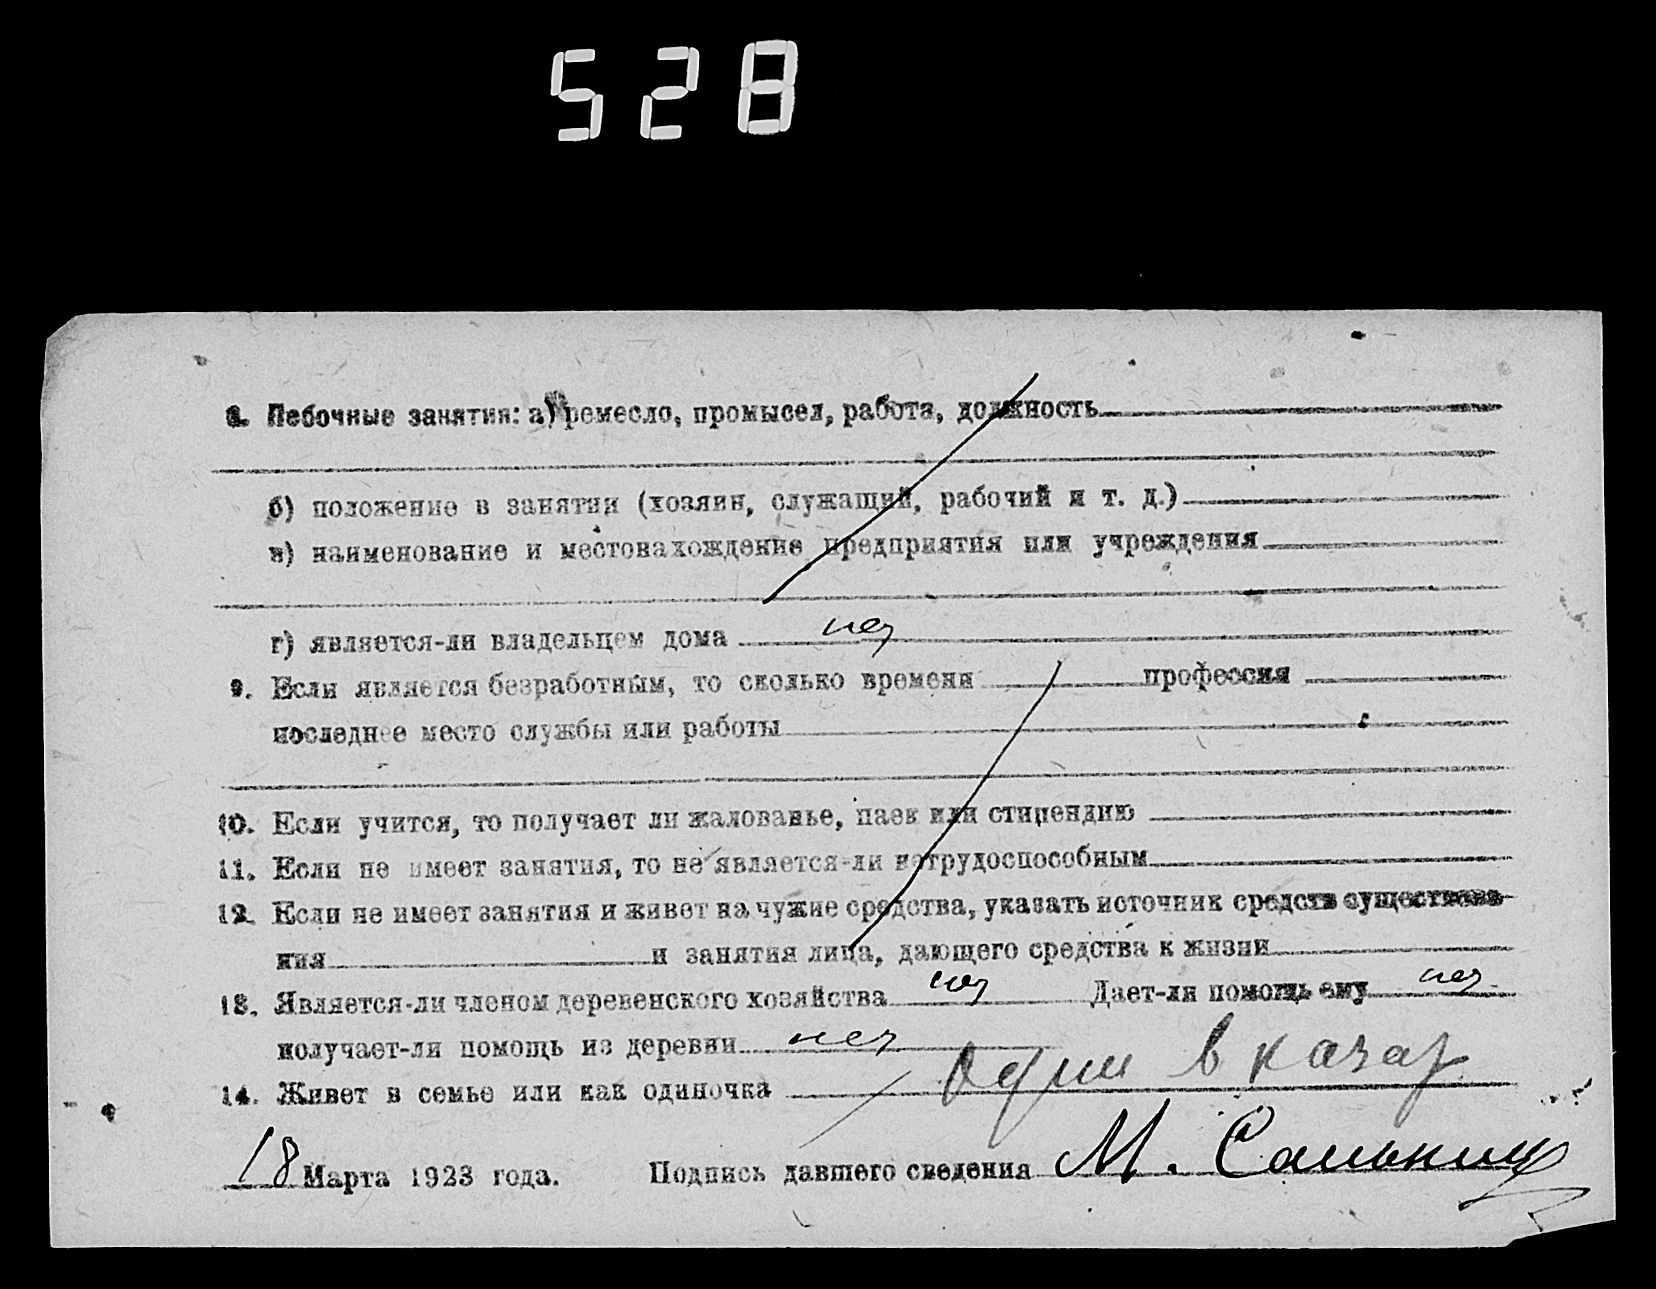 528
8. Побочные занятия: а) ремесло, промысел, работа, должность
б) положение в занятии (хозяин, служащий, рабочий и т. д.)
в) наименование и местонахождение предприятия или учреждения
г) является-ли владельцем дома нет
9. Если является безработным, то сколько времени профессия
последнее место службы или работы
10. Если учится, то получает ли жалованье, паек или стипендию
11. Если не имеет занятия, то не является-ли нетрудоспособным
12. Если не имеет занятия и живет на чужие средства, указать источник средств существова-
ния и занятия лица, дающего средства к жизни
13. Является-ли членом деревенского хозяйства нет Дает-ли помощь ему нет
получает-ли помощь из деревни нет
14. Живет в семье или как одиночка в
18 Марта 1923 года. Подпись давшего сведения М.